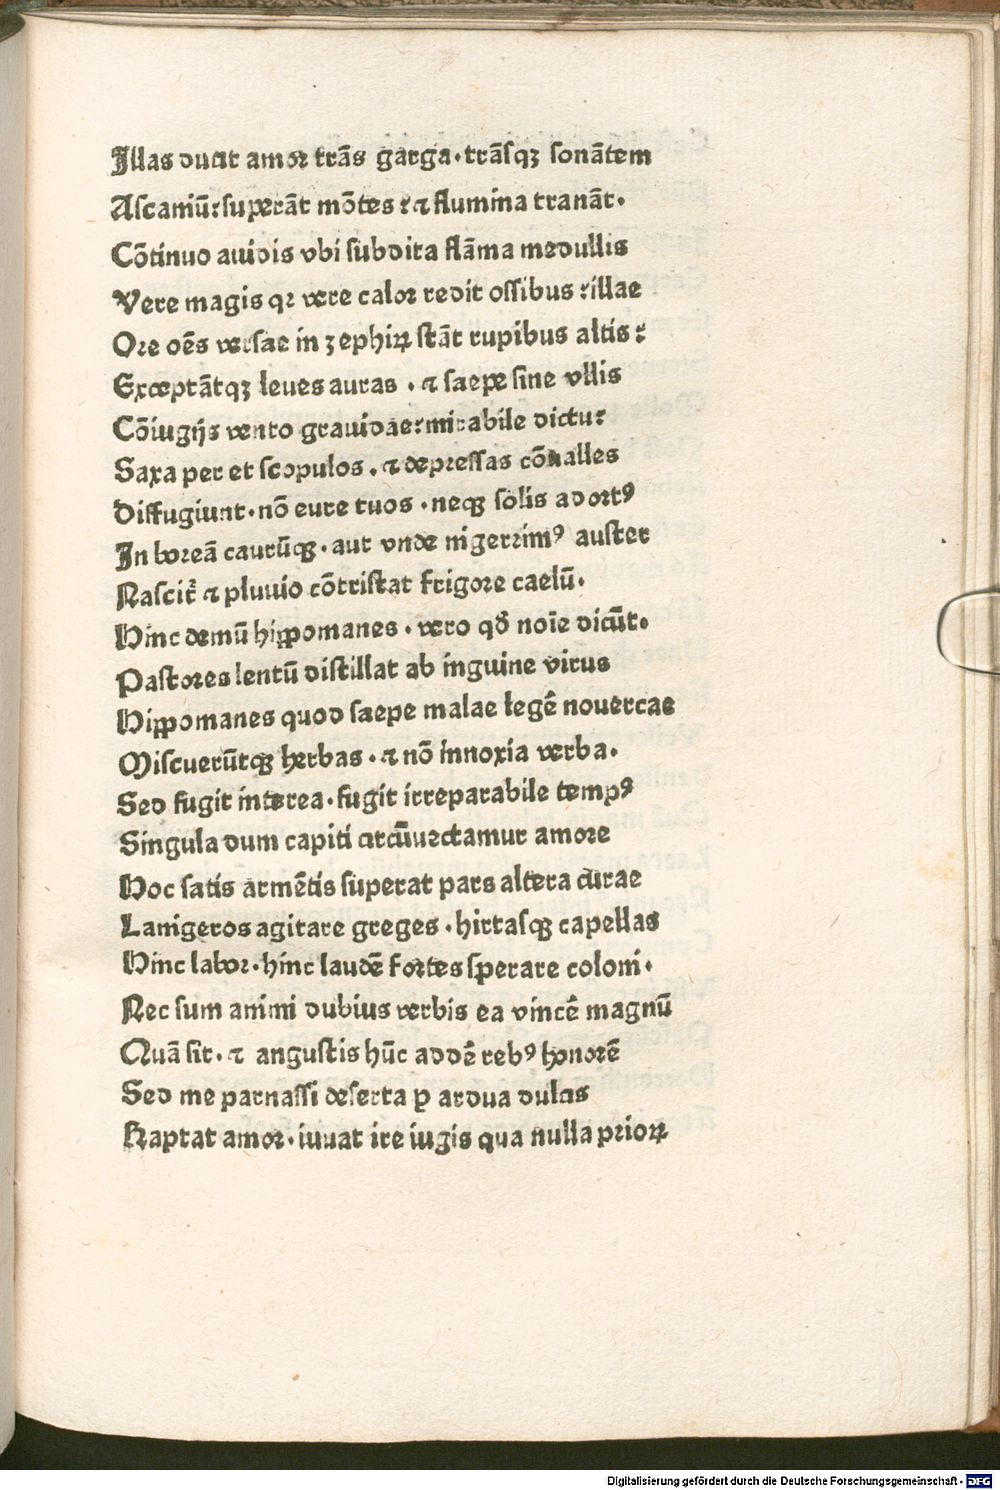 Illas ducit amor trās garga·trāsqꝫ sonātem
Ascaniū:superāt mōtes:⁊ flumina tranāt·
Cōtinuo auidis vbi subdita flāma medullis
Vere magis qꝛ vere calor redit ossibus:illae
Ore oēs versae in zephiꝝ stāt rupibus altis:
Exceptātqꝫ leues auras·⁊ saepe sine vllis
Cōiugijs vento grauidae:mirabile dictu:
Saxa per et scopulos·⁊ depressas cōualles
Diffugiunt·nō eure tuos·neqꝫ solis adortꝰ
In boreā caurūqꝫ·aut vnde nigerrimꝰ auster
Nascit̄ ⁊ pluuio cōtristat frigore caelū·
Hinc demū hipꝑomanes·vero qd̄ noīe dicūt·
Pastores lentū distillat ab inguine virus
Hipꝑomanes quod saepe malae legē nouercae
Miscuerūtqꝫ herbas·⁊ nō innoxia verba·
Sed fugit interea·fugit irreparabile tempꝰ
Singula dum capiti circūuectamur amore
Hoc satis armētis superat pars altera curae
Lanigeros agitare greges·hirtasqꝫ capellas
Hinc labor·hinc laudē fortes sperare coloni·
Nec sum animi dubius verbis ea vincē magnū
Quā sit·⁊ angustis hūc addē rebꝰ honorē
Sed me parnassi deserta ꝑ ardua dulcis
Raptat amor·iuuat ire iugis qua nulla prioꝝ
Digitalisierung gefördert durch die Deutsche Forschungsgemeinschaft - DFG